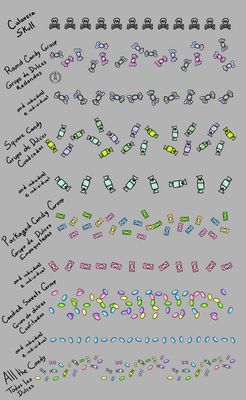 Calavera
Skull
Round Candy Group
Grupo de Dulces
Redondos
and individual
e individual
Square Candy
Grupo de Dulces
Cuadrados
and individual
e individual
Packaged Candy Group
Grupo de Dulces
Empaquetados
and individual
e individual
Combak Sweets Group
Grupo de dulces
Confitados
and individual
e individual
All the Candy
Todos los
Dulces